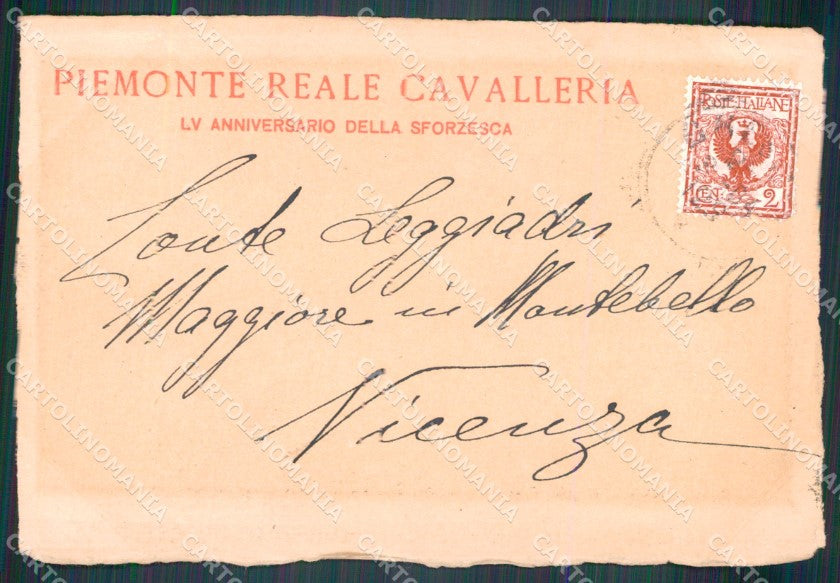 PIEMONTE REALE CAVALLERIA
LV ANNIVERSARIO DELLA SFORZESCA
POSTE ITALIANE
CEN. 2
Conte Leggiadri
Maggiore in Montebello
Vicenza
CARTOLINOMANIA